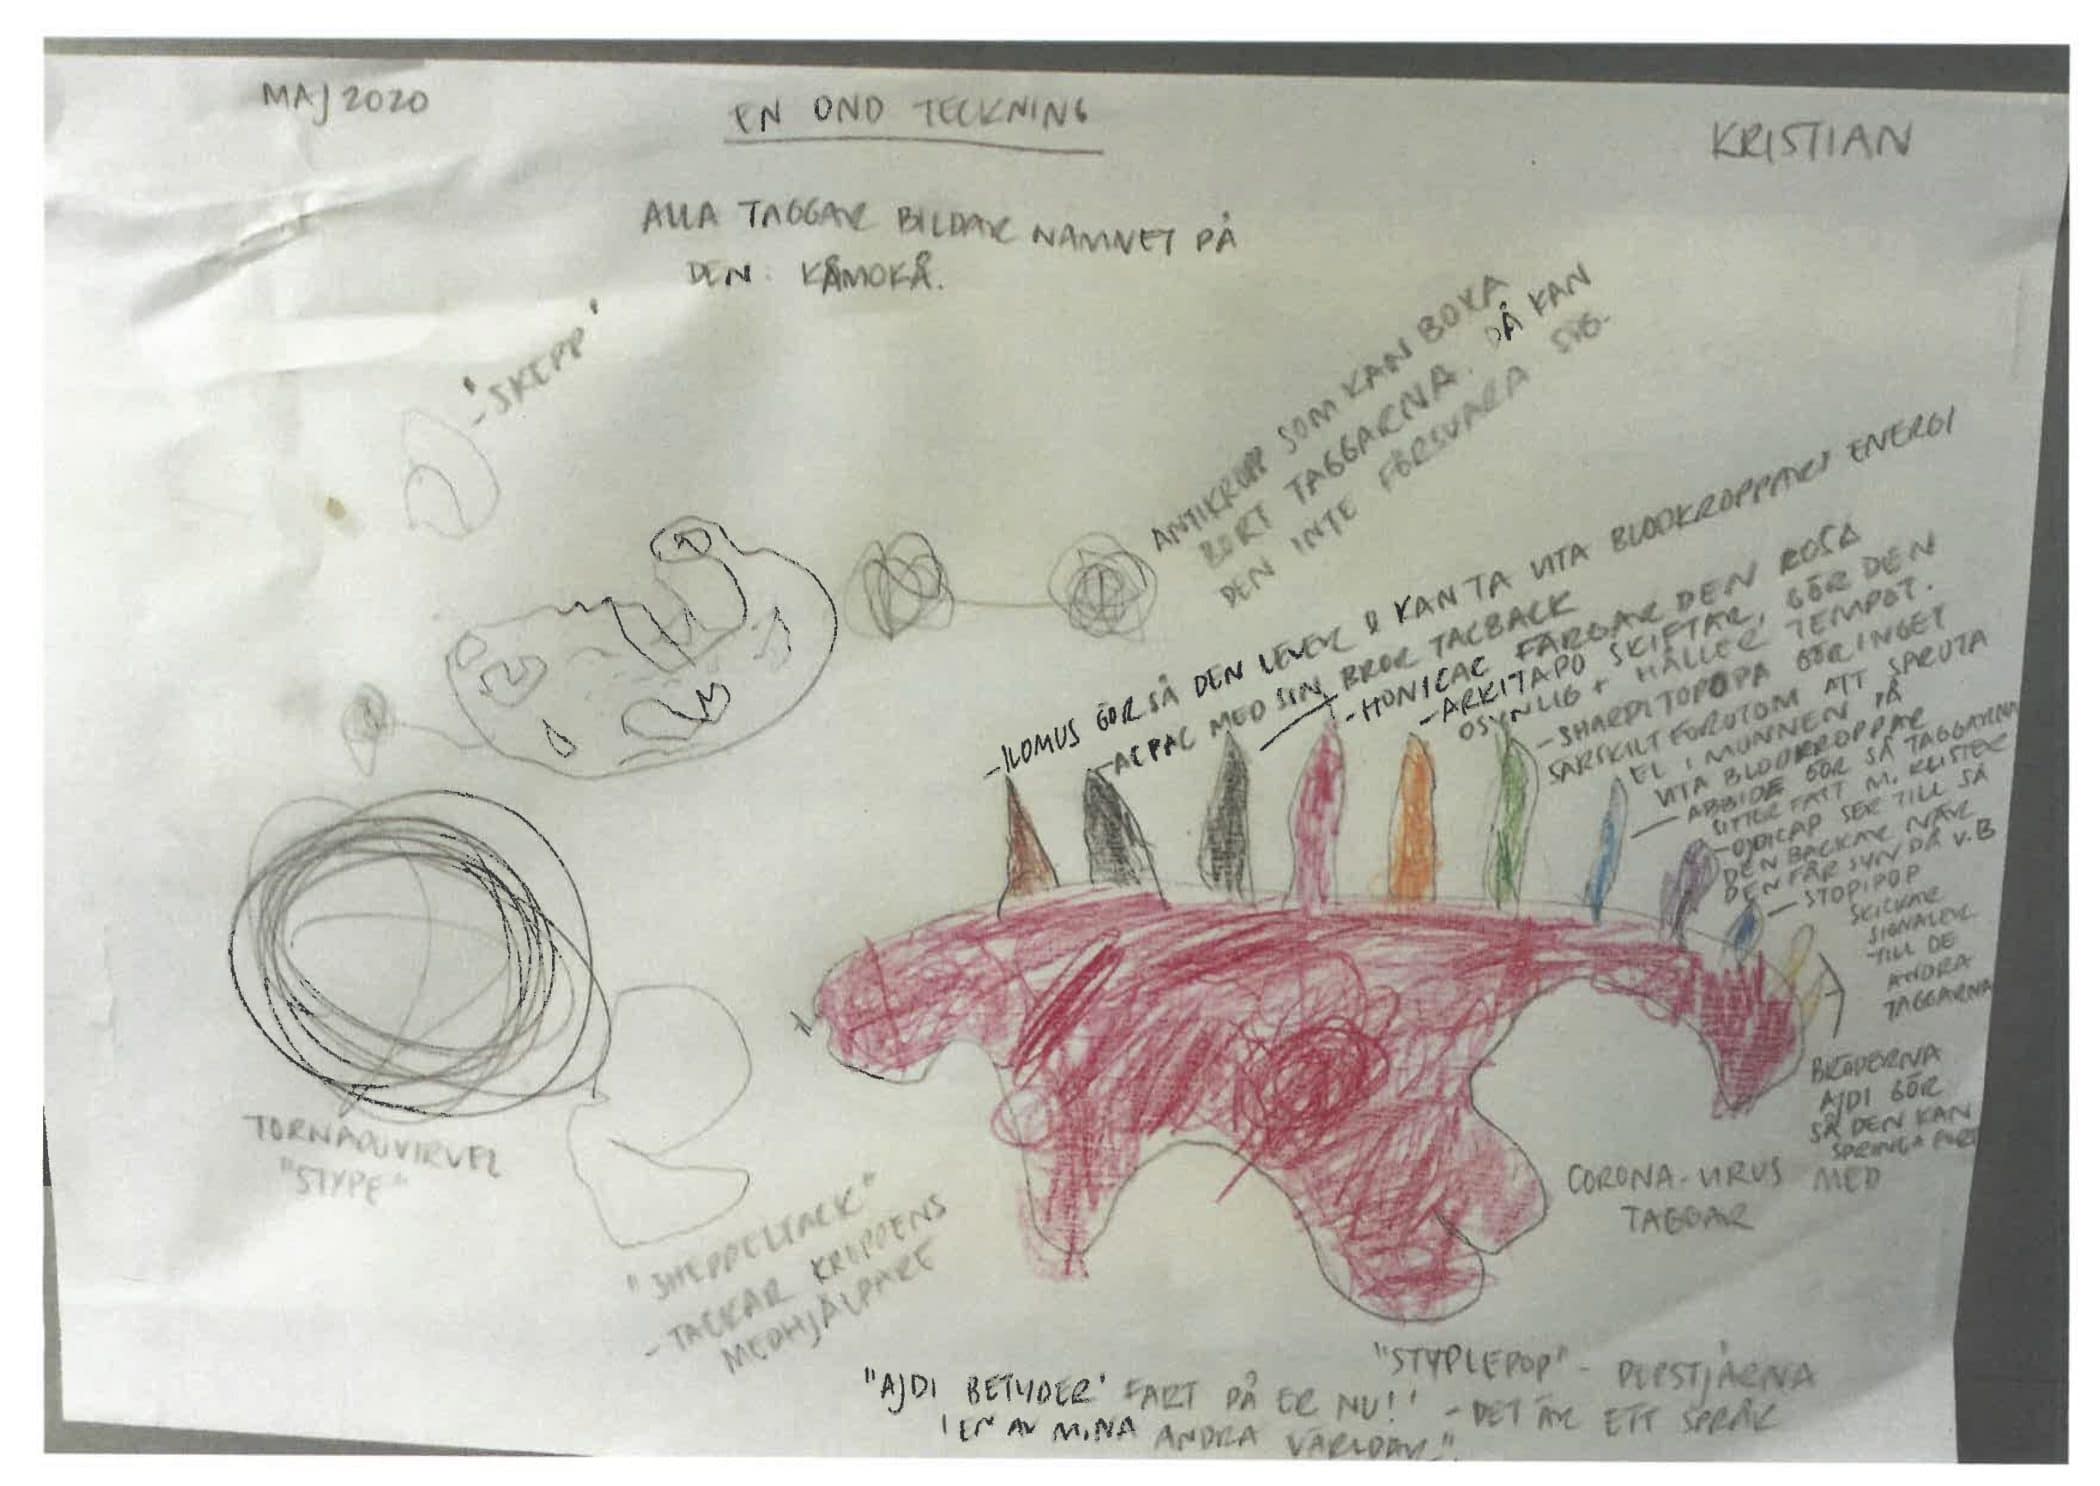 MAJ 2020
EN OND TECKNING
KRISTIAN
ALLA TAGGAR BILDAR NAMNET PÅ
DEN: KÅMOKÅ.
-'SKEPP'
ANTIKROPP SOM KAN BOXA
BORT TAGGARNA. DÅ KAN
DEN INTE FÖRSVARA SIG.
-ILOMUS GÖR SÅ DEN LEVER & KAN TA VITA BLODKROPPARS ENERGI
-ALPAC MED SIN BROR TACBACK
-HONICAC FÄRGAR DEN ROSA
-ARKITAPO SKIFTAR, GÖR DEN
OSYNLIG + HÅLLER TEMPOT.
-SHARDITOPOPA GÖR INGET
SÄRSKILT FÖRUTOM ATT SPRUTA
EL I MUNNEN PÅ
VITA BLODKROPPAR
-ABBIDE GÖR SÅ TAGGARNA
SITTER FAST M. KLISTER
-OJDICAP SER TILL SÅ
DEN BACKAR NÄR
DEN FÅR SYN PÅ V.B
-STOPIPOP
SKICKAR
SIGNALER
TILL DE
ANDRA
TAGGARNA
BRÖDERNA
AJDI GÖR
SÅ DEN KAN
SPRINGA FORT
CORONA-VIRUS MED
TAGGAR
TORNADOVIRVEL
"STYPE"
"SHEPPELTACK"
-TACKAR KROPPENS
MEDHJÄLPARE
"STYPLEPOP"- POPSTJÄRNA
"AJDI BETYDER 'FART PÅ ER NU!' -DET ÄR ETT SPRÅK
I EN AV MINA ANDRA VÄRLDAR".